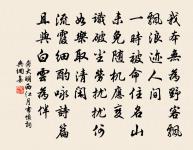 我本無為野客飄
飄浪跡人間
一時被命住名山
未免隨機應變
識破塵勞擾擾何
如樂取清閒
流霞細酌詠詩篇
且與白雲為伴
大明西江月書懷詞
典網集